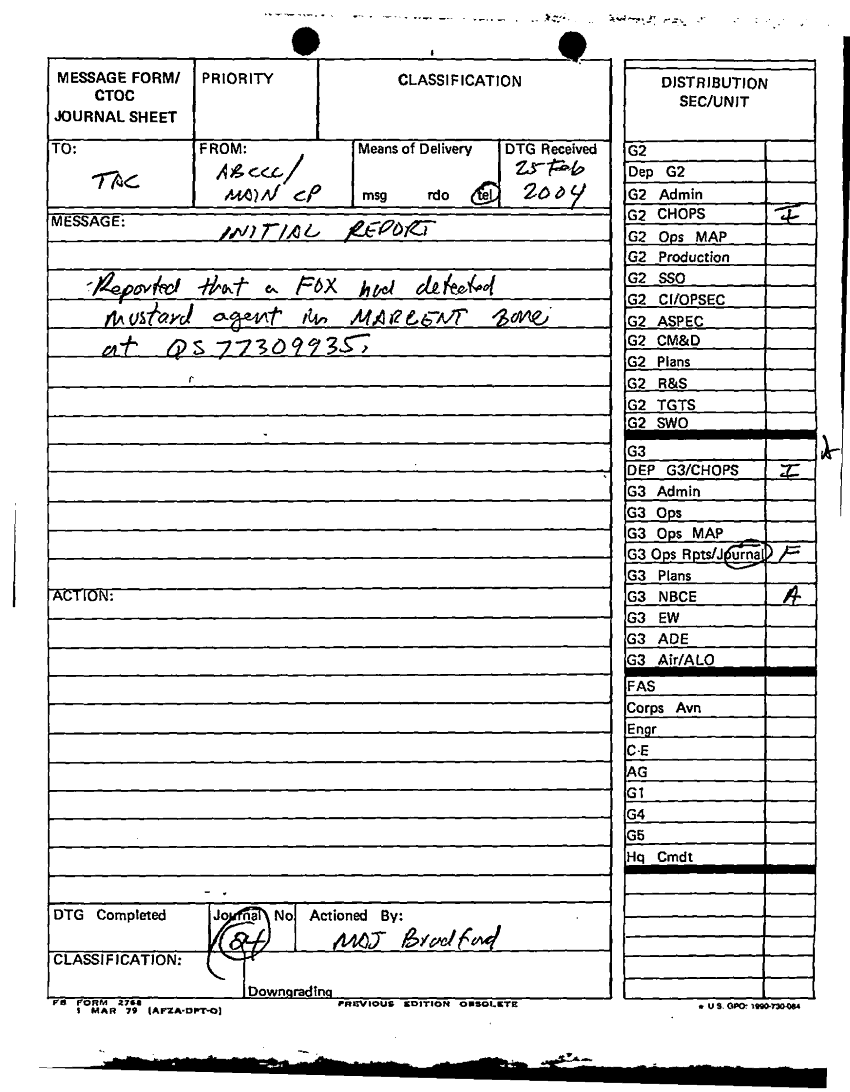 MESSAGE FORM/
CTOC
JOURNAL SHEET
PRIORITY
CLASSIFICATION
TO:
TAC
FROM:
ABCCC/
MAIN CP
Means of Delivery
msg rdo tel
DTG Received
25 Feb
2004
MESSAGE:
INITIAL REPORT
-Reported that a FOX had detected
mustard agent in MARCENT zone
at QS 77309935.
ACTION:
DTG Completed
Journal No
84
Actioned By:
MAJ Bradford
CLASSIFICATION:
Downgrading
FB FORM 2768
1 MAR 79 (AFZA-DPT-O)
PREVIOUS EDITION OBSOLETE
DISTRIBUTION
SEC/UNIT
G2
Dep G2
G2 Admin
G2 CHOPS I
G2 Ops MAP
G2 Production
G2 SSO
G2 CI/OPSEC
G2 ASPEC
G2 CM&D
G2 Plans
G2 R&S
G2 TGTS
G2 SWO
G3
DEP G3/CHOPS I
G3 Admin
G3 Ops
G3 Ops MAP
G3 Ops Rpts/Journal F
G3 Plans
G3 NBCE A
G3 EW
G3 ADE
G3 Air/ALO
FAS
Corps Avn
Engr
C-E
AG
G1
G4
G5
Hq Cmdt
★ U.S. GPO: 1990-730-084